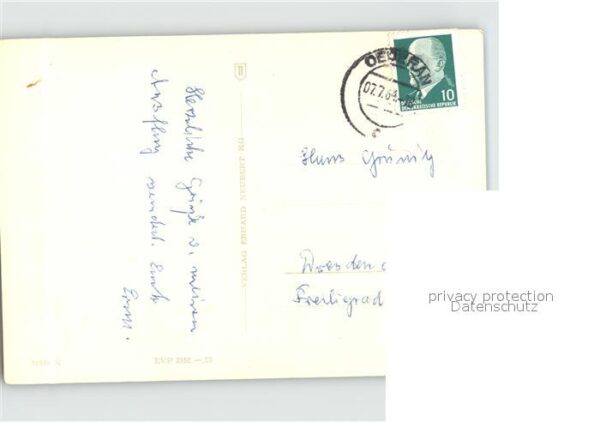 Herzliche Grüße v. meinem
Ausflug sendet Euch
Erna.
VERLAG ERHARD NEUBERT KG
EVP DM —,15
OEDERAN
07.7.64
10
DEUTSCHE
DEMOKRATISCHE REPUBLIK
Hans
Dresden
Freiligrad
privacy protection
Datenschutz